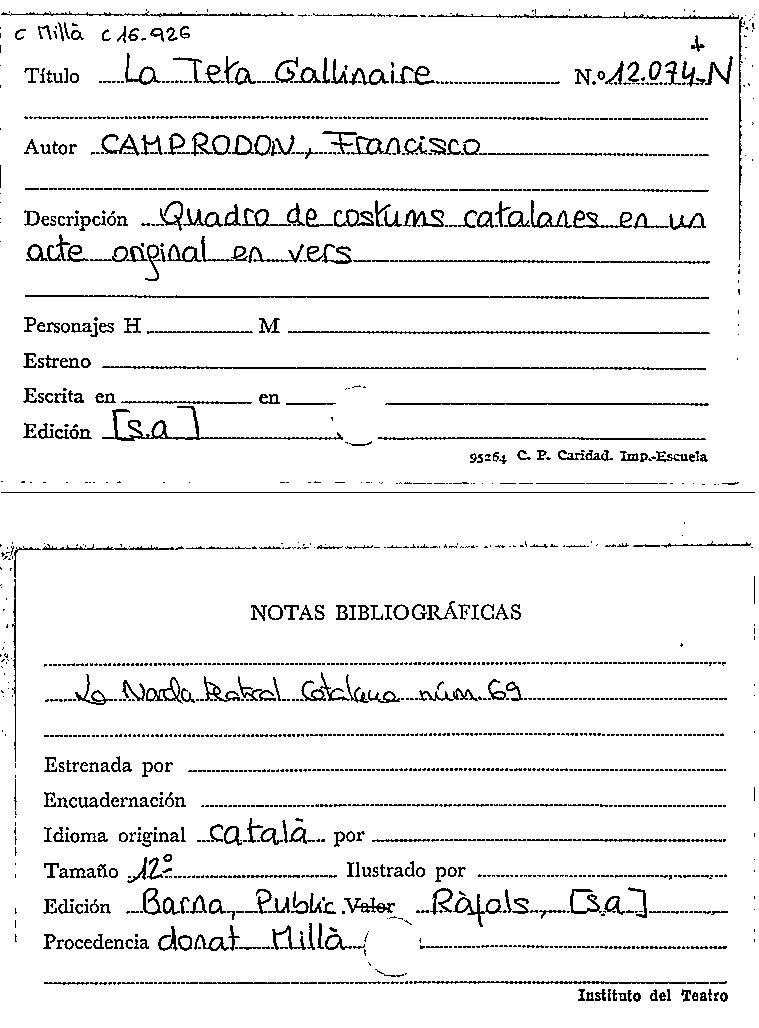 C Millà C 16.926
Título La Teta Gallinaire N.º 12.074-N
Autor CAMPRODON, Francisco
Descripción Quadro de costums catalanes en un
acte original en vers
Personajes H M
Estreno
Escrita en en
Edición [s.a]
95264 C. P. Caridad. Imp.-Escuela
NOTAS BIBLIOGRÁFICAS
La Novela teatral Catalana núm. 69
Estrenada por
Encuadernación
Idioma original català por
Tamaño 12º Ilustrado por
Edición Barna, Public. Valor Ràfols, [s.a]
Procedencia donat Millà
Instituto del Teatro